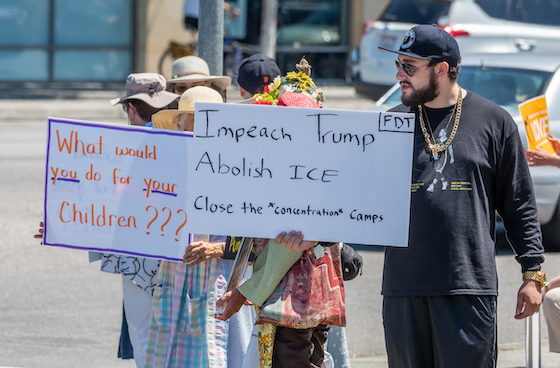 What would
you do for your
Children ???
Impeach Trump
FDT
Abolish ICE
Close the *concentration* Camps